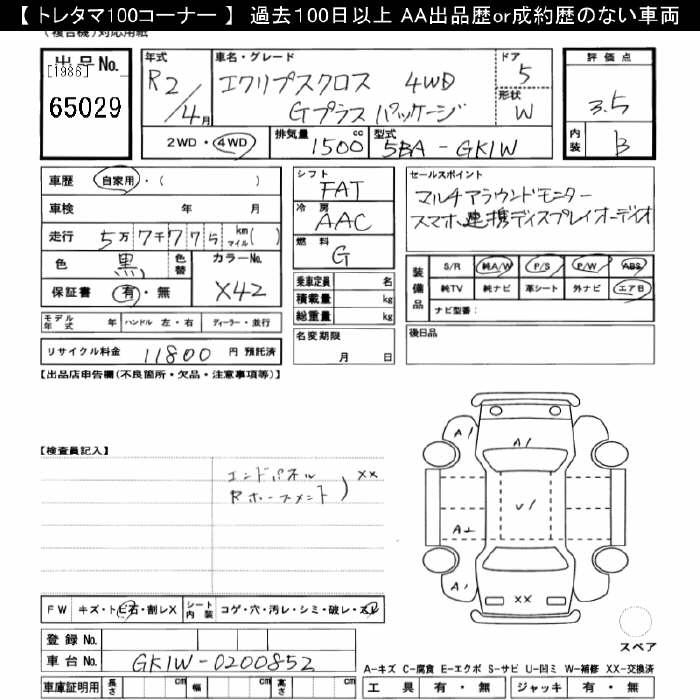 【 トレタマ100コーナー 】 過去100日以上 AA出品歴or成約歴のない車両
(複合機)対応用紙
出品No.
[1986]
65029
年式 R2/4月
車名・グレード エクリプスクロス 4WD
Gプラスパッケージ
ドア 5
形状 W
2WD・4WD
排気量 1500 cc
型式 5BA-GK1W
評価点 3.5
内装 B
車歴 自家用・( )
車検 年 月
走行 5万7千775 km マイル( )
色 黒 色替 カラーNo.
保証書 有・無 X42
モデル年式 年 ハンドル 左・右 ディーラー・並行
リサイクル料金 11800 円 預託済
シフト FAT
冷房 AAC
燃料 G
乗車定員 名
積載量 kg
総重量 kg
名変期限
月 日
セールスポイント
マルチアラウンドモニター
スマホ連携ディスプレイオーディオ
装備品 S/R 純A/W P/S P/W ABS
純TV 純ナビ 革シート 外ナビ エアB
ナビ型番:
後日品
【出品店申告欄(不良箇所・欠品・注意事項等)】
【検査員記入】
エンドパネル
Rホースメント ) XX
A1
A1
U1
A2
A1
XX
スペア
FW キズ・トビ石・割レX シート内装 コゲ・穴・汚レ・シミ・破レ・スレ
登録No.
車台No. GK1W-0200852
車庫証明用 長さ cm 幅 cm 高さ cm
A-キズ C-腐食 E-エクボ S-サビ U-凹ミ W-補修 XX-交換済
工具 有・無 ジャッキ 有・無